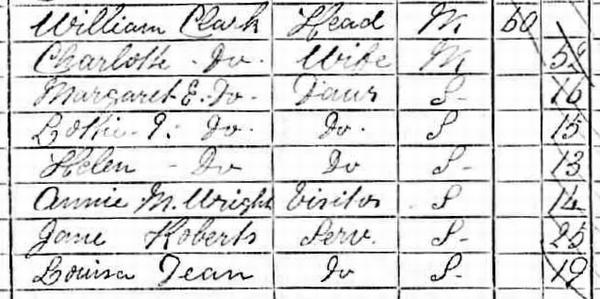 William Clark Head M 60
Charlotte - Do. Wife M 52
Margaret E. Do. Daur S- 16
Lottie I. Do. Do. S 15
Helen - Do Do S- 13
Annie M. Wright Visitor S 14
Jane Roberts Serv. S- 25
Louisa Jean Do S- 19